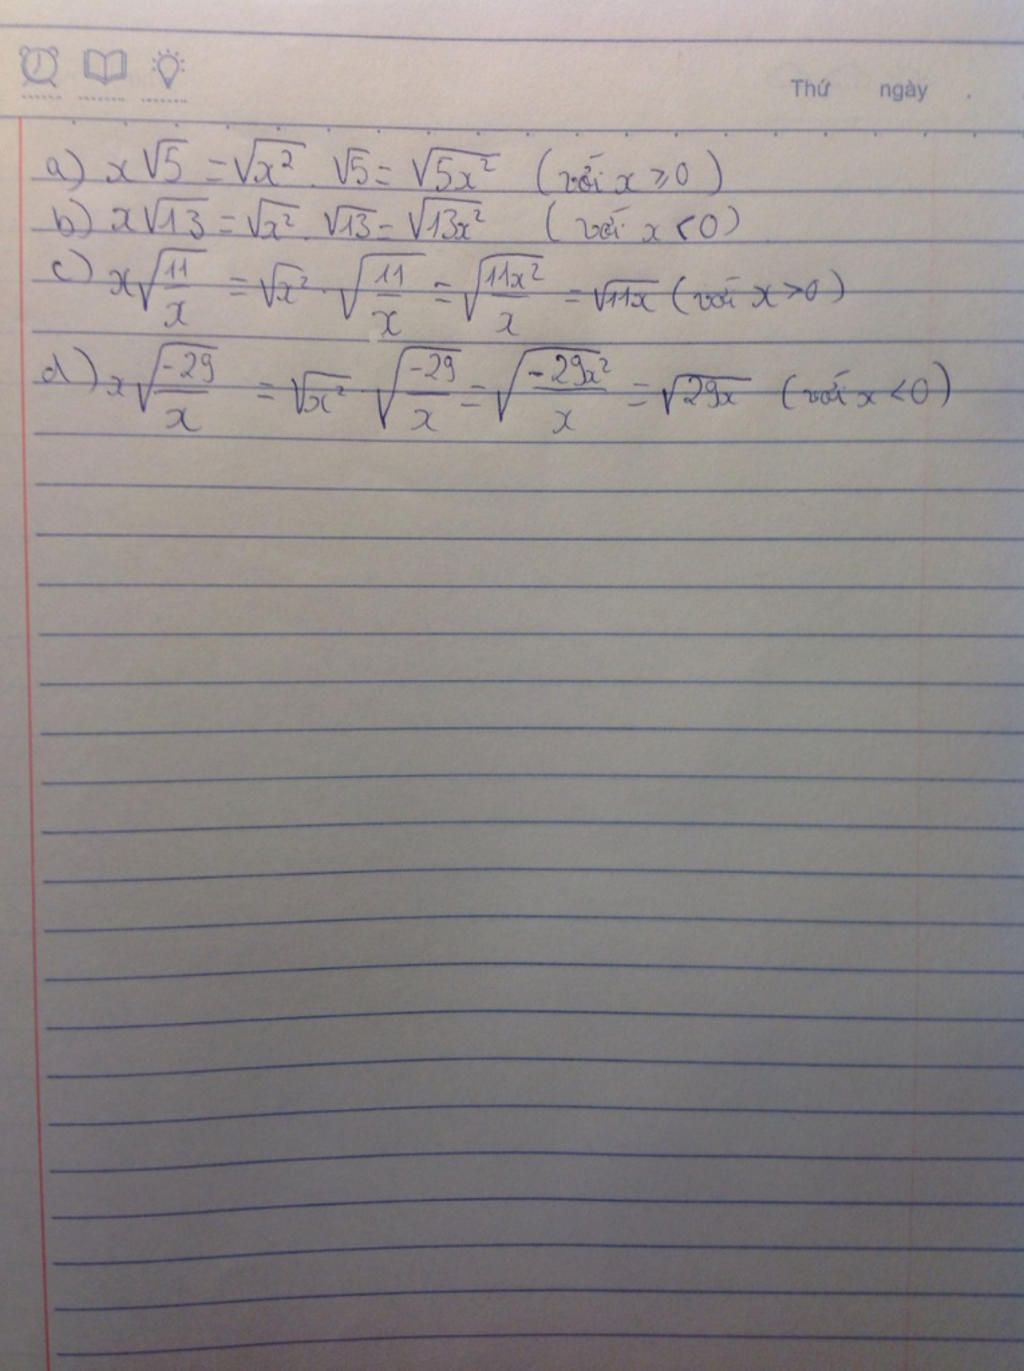 Thứ ngày .
a) x√5 = √x² . √5 = √5x² (với x ≥ 0)
b) x√13 = √x² . √13 = √13x² (với x < 0)
c) x√(11/x) = √x² . √(11/x) = √(11x²/x) = √11x (với x > 0)
d) x√(-29/x) = √x² . √(-29/x) = √(-29x²/x) = √29x (với x < 0)